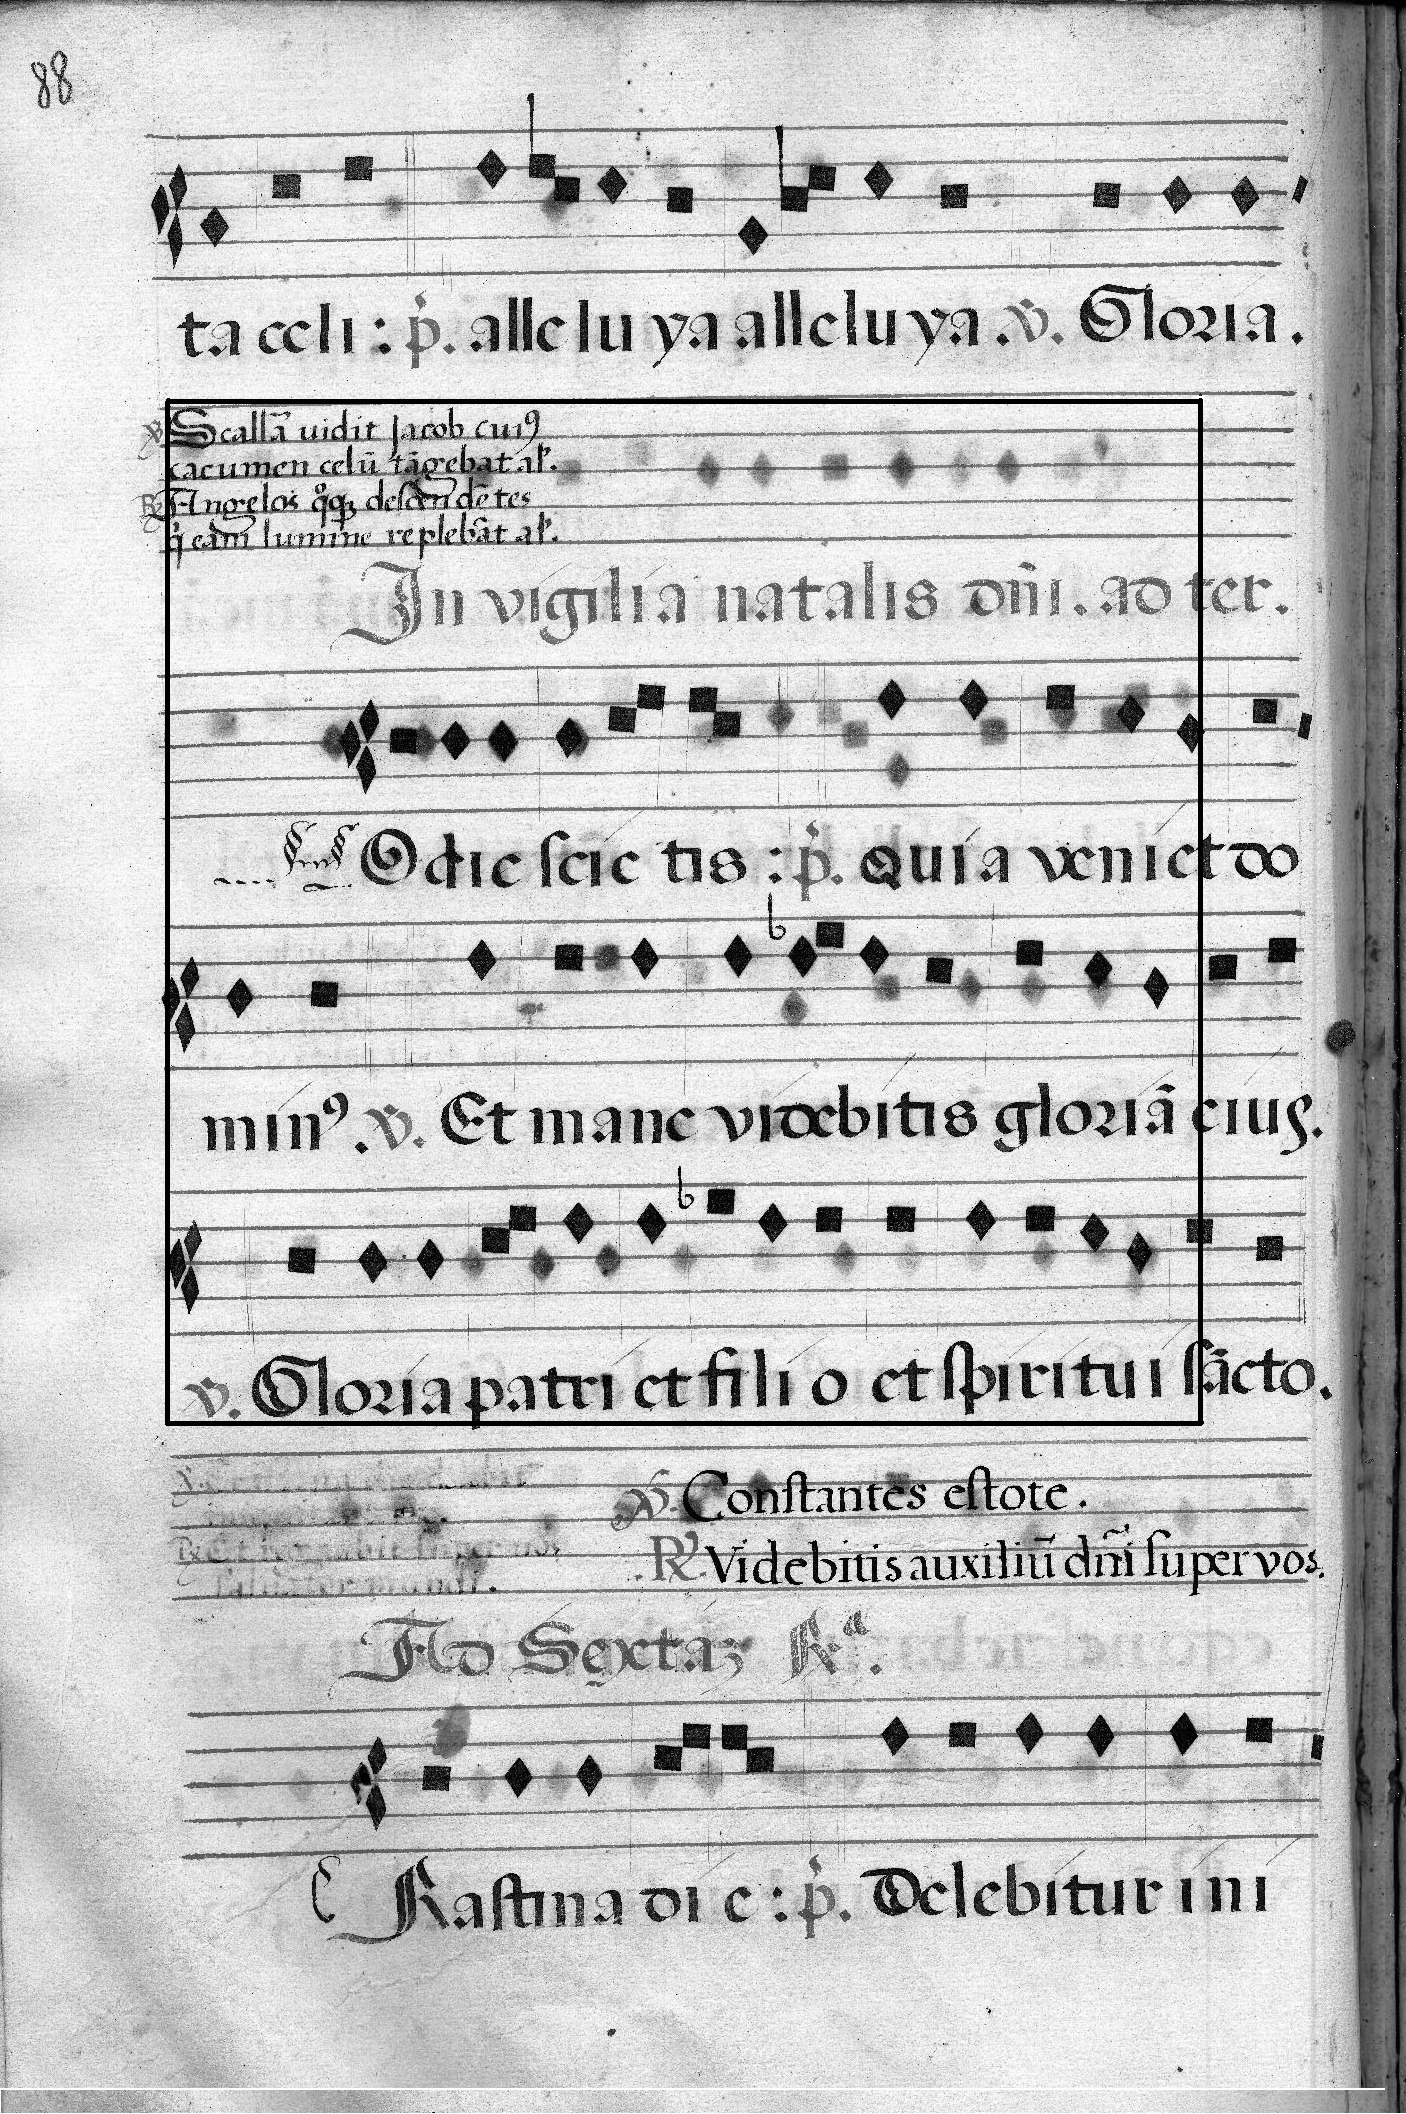 88
ta celi : p̃. allelu ya alleluya .v̄. Gloria.
v̄ Scallā uidit Jacob cuiꝰ
cacumen celū tāgebat al'.
R̄ Angelos qͦꝗ descendētes
q̇ eam lumine replebāt al'.
In vigilia natalis dn̄i. ad ter.
Odie scie tis : p̃. quia veniet do
minꝰ .v̄. Et mane videbitis gloriā eiuꝰ.
v̄. Gloria patri et fili o et spiritui sācto.
v̄. Constantes estote.
R̄. Videbitis auxiliū dn̄i super vos.
Ad Sextaꝫ Rᵃ.
C Rastina di e : p̃. Delebitur ini